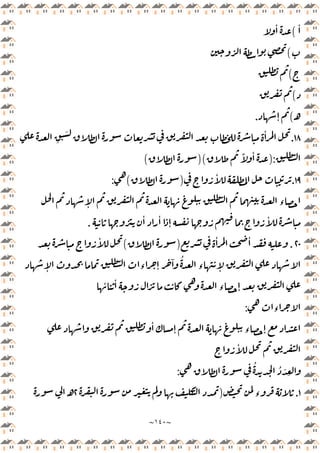 أ ) عدة أولا
ب) تحصى بواسطة الزوجين
ج) ثم تطليق
د) ثم تفريق
ه) ثم إشهاد.
١٨. تحل المرأة مباشرة للخطاب بعد التفريق في تشريعات سورة الطلاق لسبق العدة علي
التطليق:(عدة أولاً ثم طلاق )( سورة الطلاق )
١٩. ترتيبات حل المطلقة للأزواج في(سورة الطلاق ):هي:
احصاء العدة بينهما ثم التطليق ببلوغ نهاية العدة ثم التفريق ثم الإشهاد ثم الحل
مباشرة للأزواج بما فيهم زوجها نفسه إذا أراد أن يتزوجها ثانية .
٢٠. وعليه فقد أضحت المرأة في تشريع(سورة الطلاق ) تحل للأزواج مباشرة بعد
الاشهاد علي التفريق لإنتهاء العدةُ وآخر إجراءات التطليق تماما بحدوث الإشهاد
علي التفريق بعد إحصاء العدة وهي كانت ما تزال زوجة أثنائها
الاجراءات هي:
اعتداد مع إحصاء ثم بلوغ نهاية العدة ثم إمساك أو تطليق ثم تفريق وإشهاد علي
التفريق ثم تحل للأزواج
والعِدَدُ الجديدةُ في سورة الطلاق هي:
١. ثلاثة قروء لمن تحيض(تمدد التكليف بها ولم يتغير من سورة البقرة٢ه الي سورة
~١٤٠~